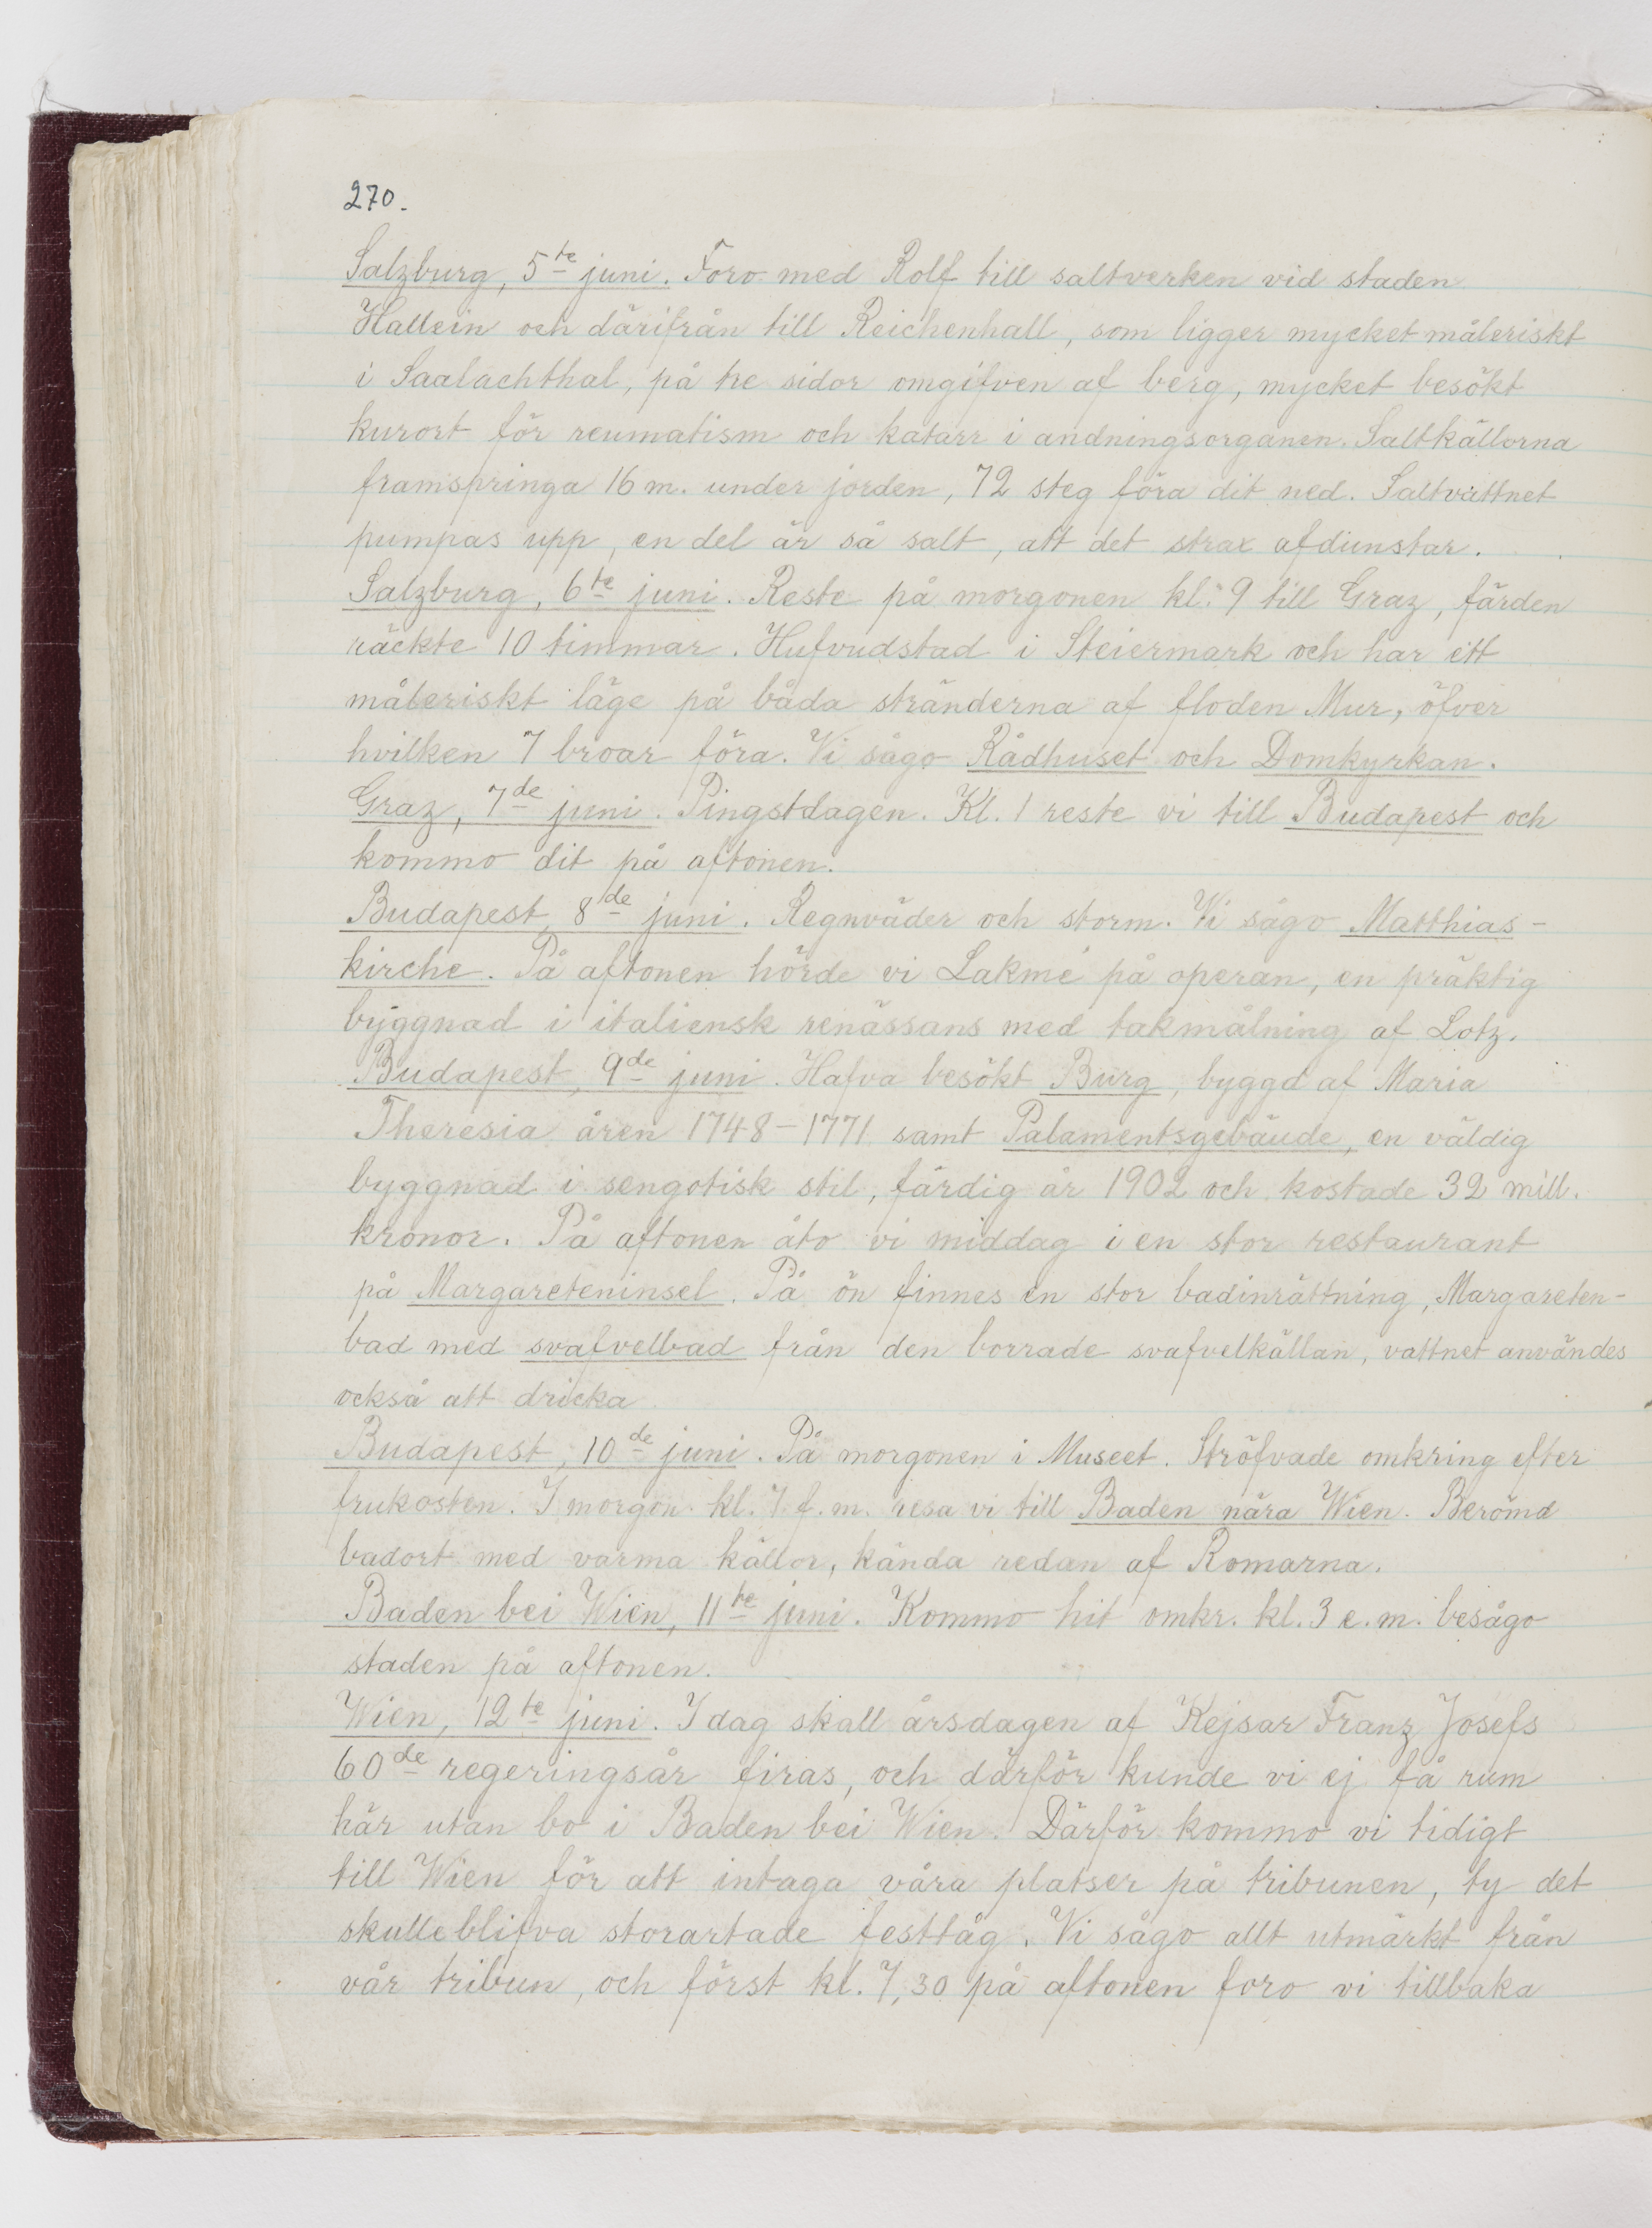 270.
Salzburg, 5te juni. Foro med Rolf till saltverken vid staden
Hallein och därifrån till Reichenhall, som ligger mycket måleriskt
i Saalachthal, på tre sidor omgifven af berg, mycket besökt
kurort för reumatism och katarr i andningsorganen. Saltkällorna
framspringa 16 m. under jorden, 72 steg föra dit ned. Saltvattnet
pumpas upp, en del är så salt, att det strax afdunstar.
Salzburg, 6te juni. Reste på morgonen kl. 9 till Graz, färden
räckte 10 timmar. Hufvudstad i Steiermark och har ett
måleriskt läge på båda stränderna af floden Mur, öfver
hvilken 7 broar föra. Vi sågo Rådhuset och Domkyrkan.
Graz, 7de juni. Pingstdagen. Kl. 1 reste vi till Budapest och
kommo dit på aftonen.
Budapest, 8de juni. Regnväder och storm. Vi sågo Matthias-
kirche. På aftonen hörde vi Lakmé på operan, en präktig
byggnad i italiensk renässans med takmålning af Lotz.
Budapest, 9de juni. Hafva besökt Burg, byggd af Maria
Theresia åren 1748-1771 samt Palamentsgebäude, en väldig
byggnad i sengotisk stil, färdig år 1902 och kostade 32 mill.
kronor. På aftonen åto vi middag i en stor restaurant
på Margareteninsel. På ön finnes en stor badinrättning, Margareten-
bad med svafvelbad från den borrade svafvelkällan, vattnet användes
också att dricka.
Budapest, 10de juni. På morgonen i Museet. Ströfvade omkring efter
frukosten. I morgon kl. 7 f. m. resa vi till Baden nära Wien. Berömd
badort med varma källor, kända redan af Romarna.
Baden bei Wien, 11te juni. Kommo hit omkr. kl. 3 e. m. besågo
staden på aftonen.
Wien, 12te juni. I dag skall årsdagen af Kejsar Franz Josefs
60de regeringsår firas, och därför kunde vi ej få rum
här utan bo i Baden bei Wien. Därför kommo vi tidigt
till Wien för att intaga våra platser på tribunen, ty det
skulle blifva storartade festtåg. Vi sågo allt utmärkt från
vår tribun, och först kl. 7,30 på aftonen foro vi tillbaka